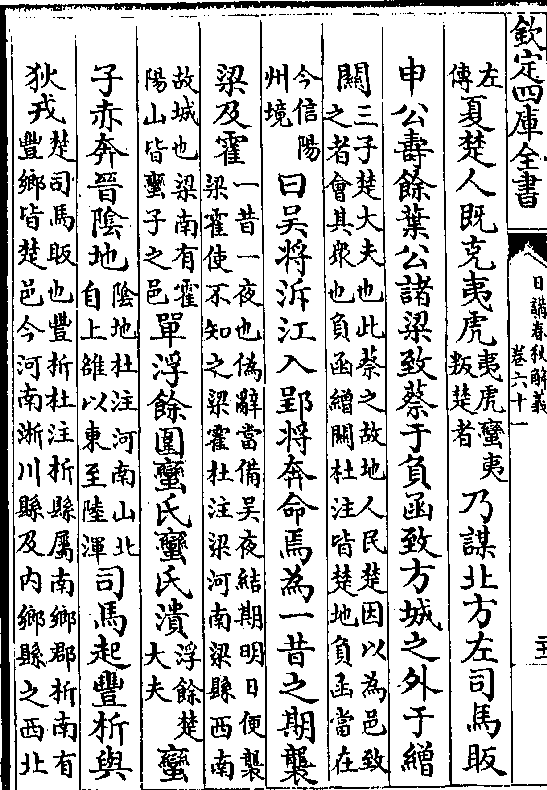 欽定四庫全書
日講春秋解義
卷六十一
二十一
左傳夏楚人既克夷虎夷虎蠻夷叛楚者乃謀北方左司馬眅
申公壽餘葉公諸梁致蔡于負函致方城之外于繒
關三子楚大夫也此蔡之故地人民楚因以為邑致之者會其衆也負函繒關杜注皆楚地負函當在
今信陽州境曰吳將泝江入郢將奔命焉為一昔之期襲
梁及霍一昔一夜也偽辭當備吳夜結期明日便襲梁霍使不知之梁霍杜注梁河南梁縣西南
故城也梁南有霍陽山皆蠻子之邑單浮餘圍蠻氏蠻氏潰浮餘楚大夫蠻
子赤奔晉陰地陰地杜注河南山北自上雒以東至陸渾司馬起豐析與
狄戎楚司馬眅也豐析杜注析縣屬南鄉郡析南有豐鄉皆楚邑今河南淅川縣及內鄉縣之西北